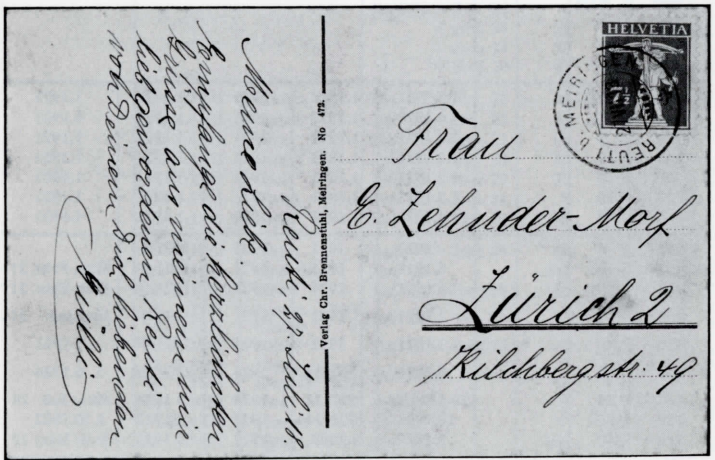 Reuti, 27. Juli 18.
Meine Liebe
Empfange die herzlichsten
Grüsse aus meinem mir
lieb gewordenen Reute
von Deinem Dich liebenden
Verlag Chr. Brennenstuhl, Meiringen. No 472.
HELVETIA
7½
REUTI b. MEIRINGEN
Frau
E. Zehnder-Morf
Zürich 2
Kilchbergstr. 49